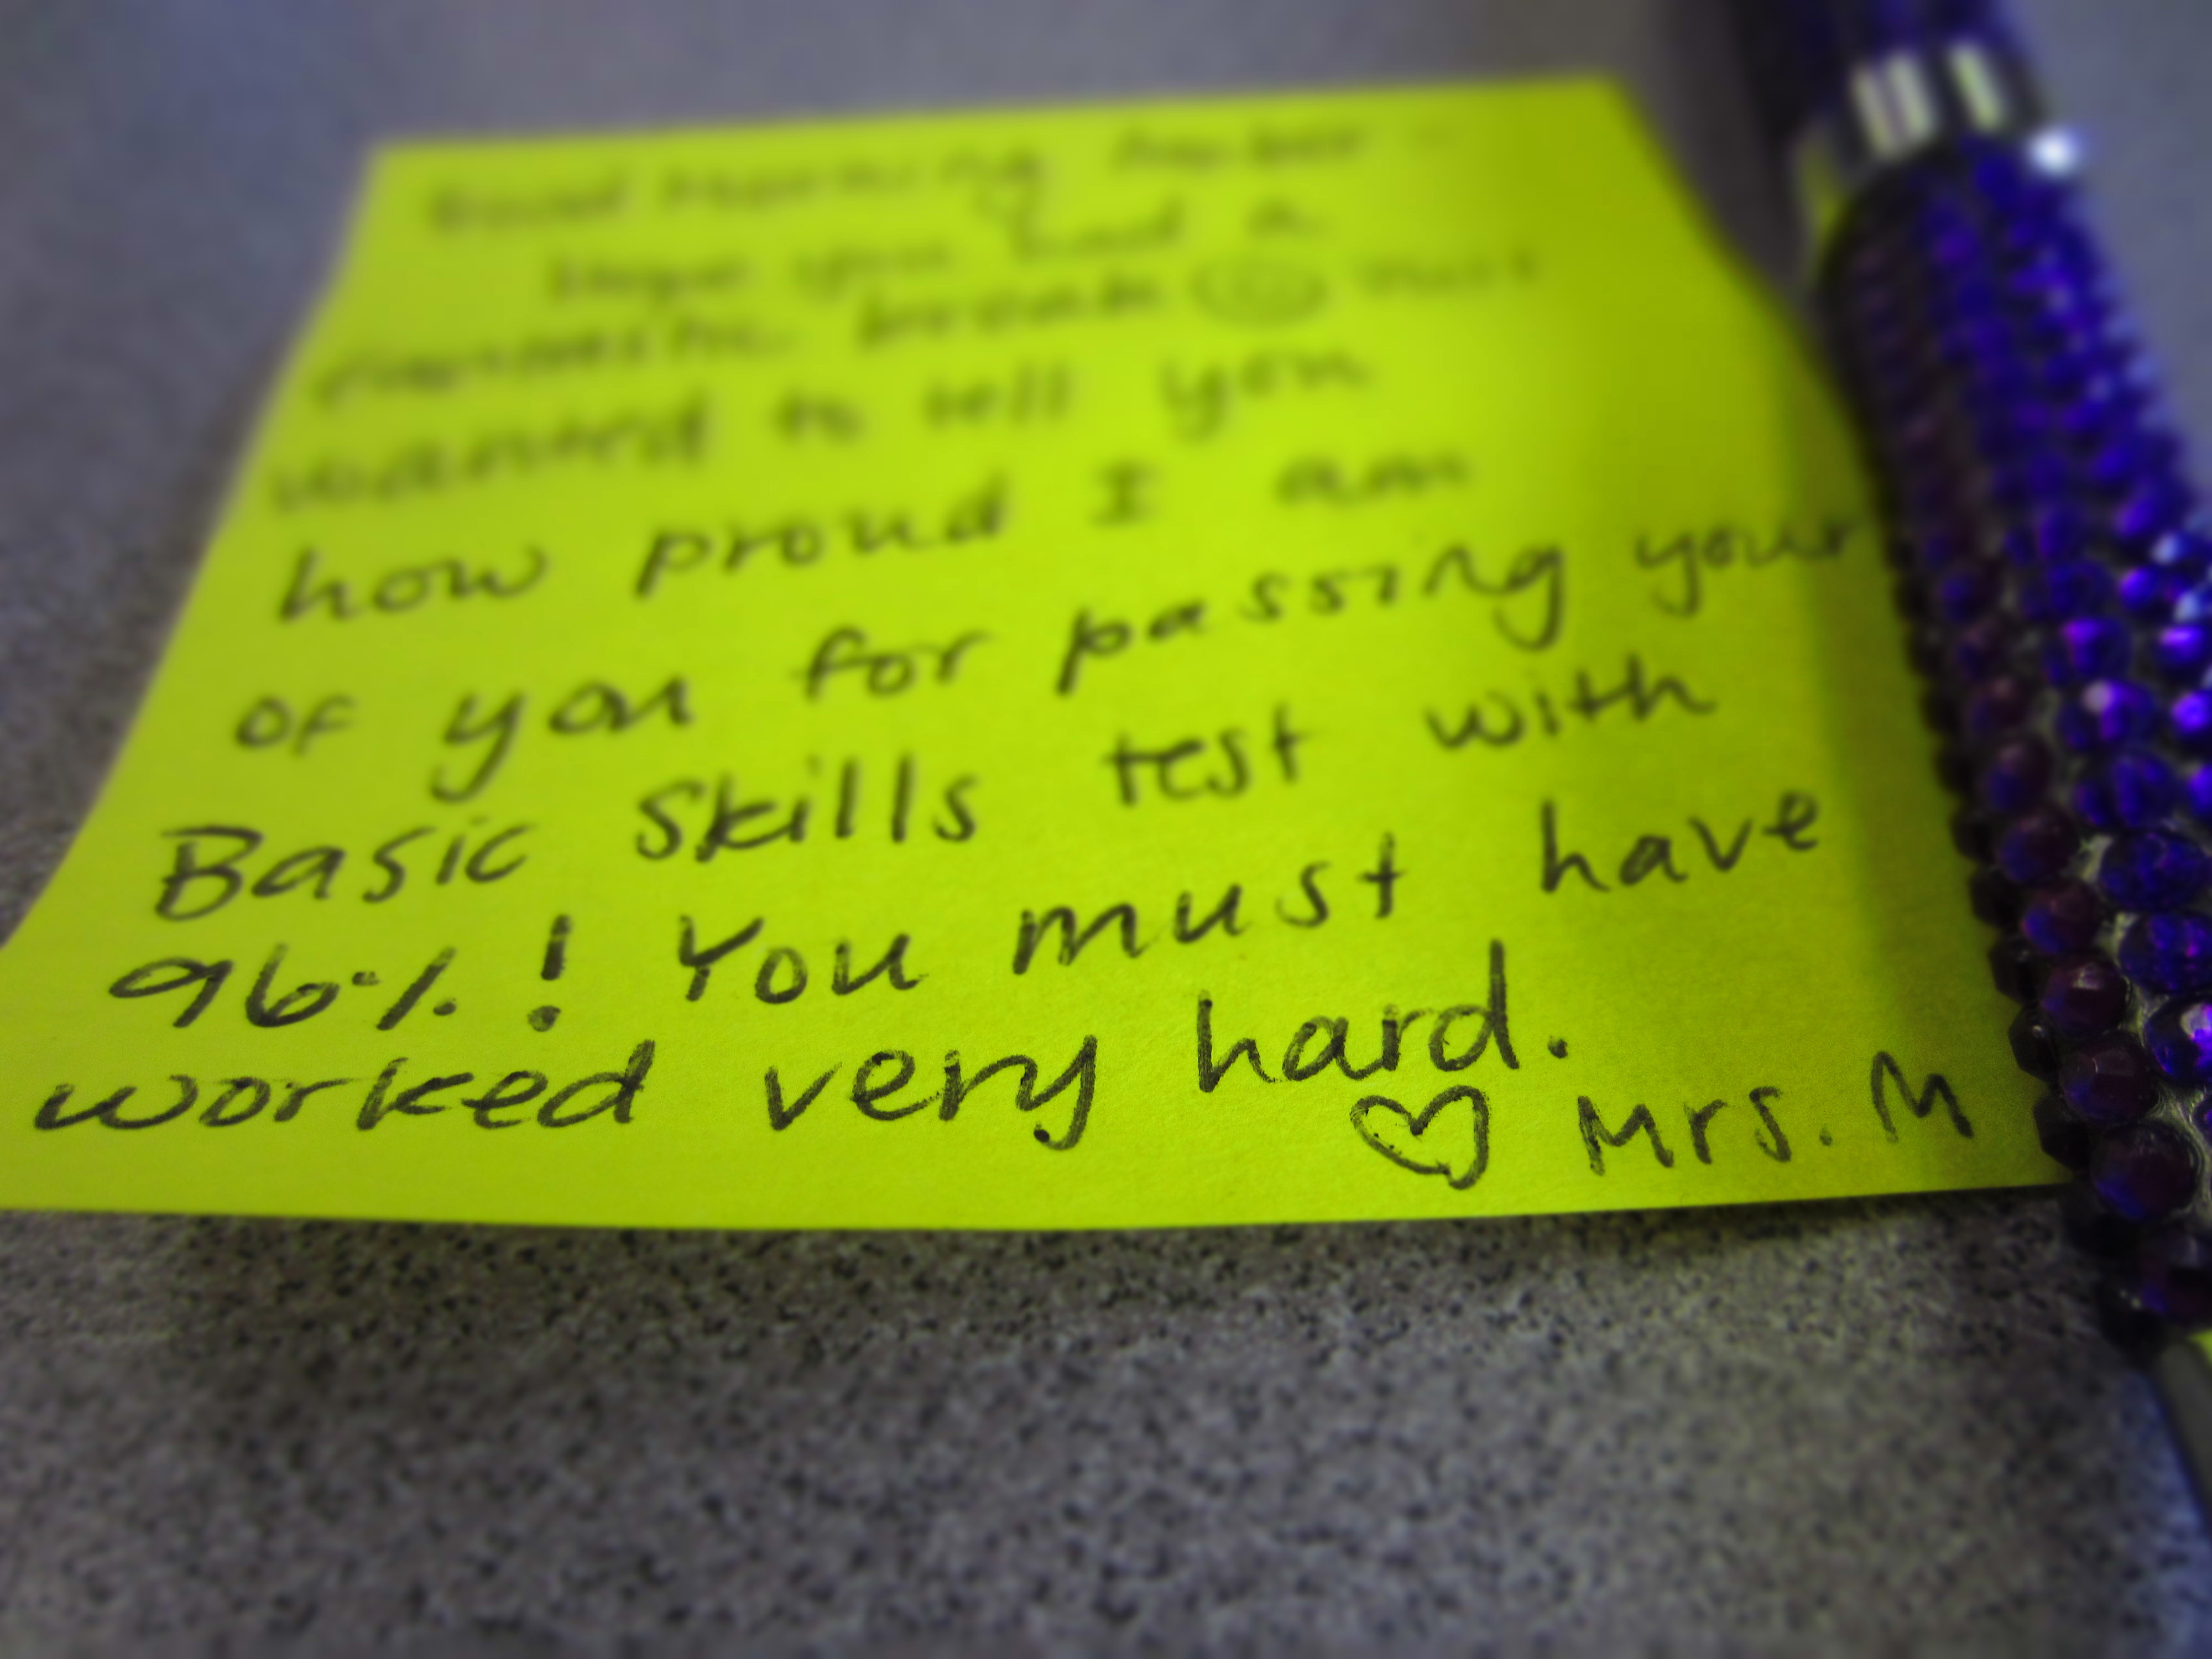 Good Morning Amber -
Hope you had a
fantastic break Just
wanted to tell you
how proud I am
of you for passing your
Basic Skills test with
96%! You must have
worked very hard.
♡ Mrs. M